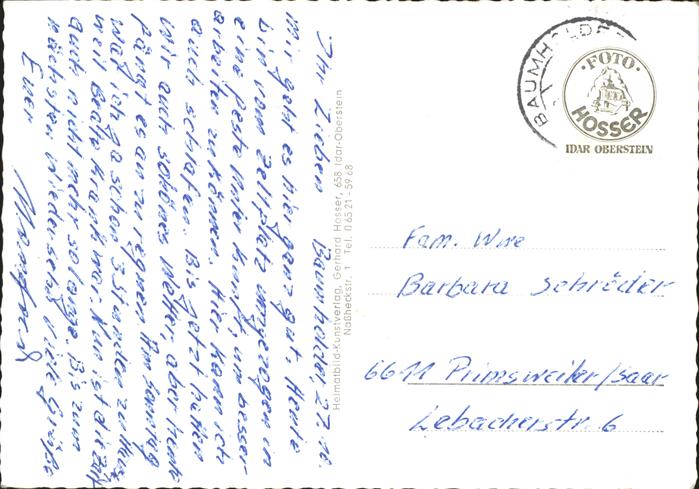 Baumholder, 27.10.
Ihr Lieben
mir geht es hier ganz gut. Heute
bin vom Zeltplatz umgezogen in
eine feste Unterkunft, um besser
arbeiten zu können. Hier kann ich
auch schlafen. Bis jetzt hatten
wir auch schönes Wetter, aber heute
fängt es an zu regnen. Am Sonntag
war ich ga schon 3 Stunden zu Haus
weil Beate krank war. Nun ist die Zeit
auch nicht mehr solange. Bis zum
nächsten Wiedersehn viele Grüße
Euer
Manfred
Heimatbild-Kunstverlag, Gerhard Hosser, 658 Idar-Oberstein
Naßheckstr. 1 Tel. 0 65 21 - 59 68
BAUMHOLDE
· FOTO ·
HOSSER
IDAR OBERSTEIN
Fam.
Barbara Schröder
6611 Primsweiler/Saar
Lebacherstr. 6